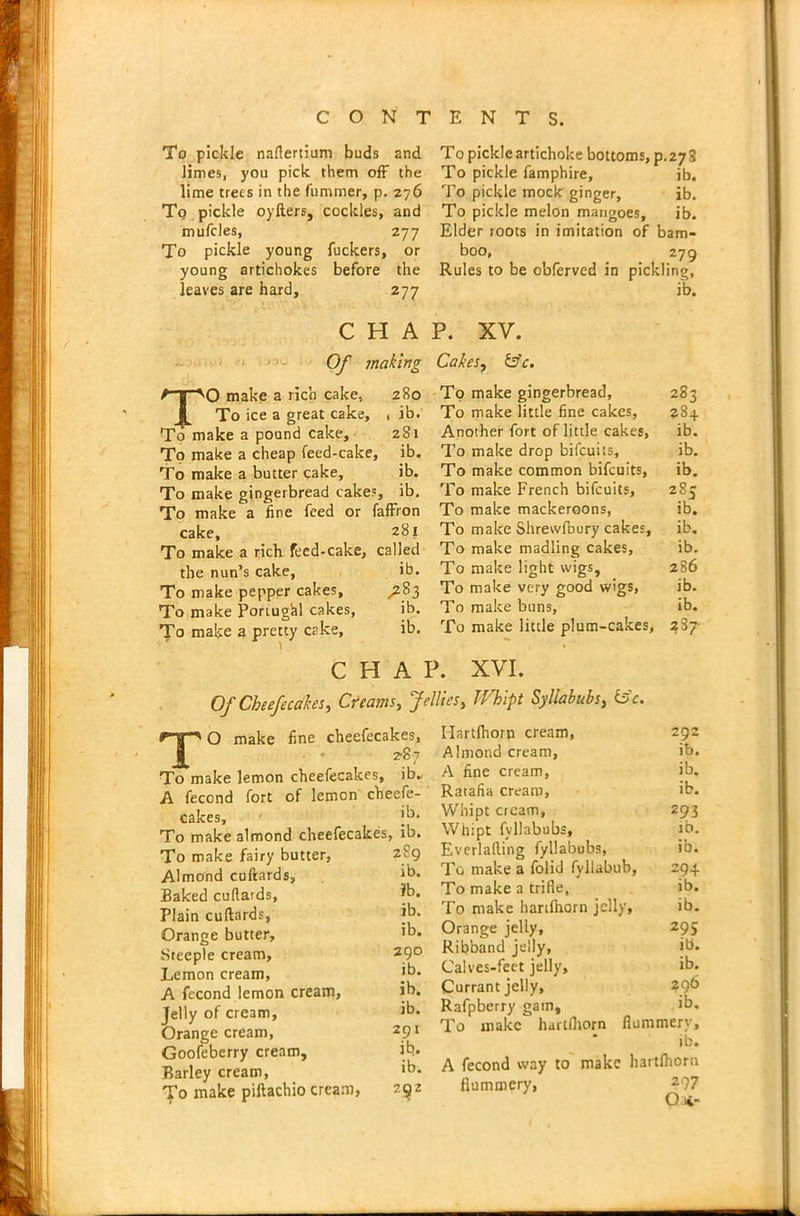 CONTENTS.
To pickle naſtertium buds and
limes, you pick them off the
lime trees in the ſummer, p. 276
To pickle oyſters, cockles, and
muſcles, 277
To pickle young ſuckers, or
young artichokes before the
leaves are hard, 277
To pickle artichoke bottoms, p. 278
To pickle ſamphire, ib.
To pickle mock ginger, ib.
To pickle melon mangoes, ib.
Elder roots in imitation of bam-
boo, 279
Rules to be obſerved in pickling,
ib.
CHAP. XV.
Of making Cakes, &c.
TO make a rich cake, 280
To ice a great cake, ib.
To make a pound cake, 281
To make a cheap ſeed-cake, ib.
To make a butter cake, ib.
To make gingerbread cakes, ib.
To make a fine ſeed or ſaffron
cake, 281
To make a rich ſeed-cake, called
the nun's cake, ib.
To make pepper cakes, 283
To make Portugal cakes, ib.
To make a pretty cake, ib.
To make gingerbread, 283
To make little fine cakes, 284
Another ſort of little cakes, ib.
To make drop biſcuits, ib.
To make common biſcuits, ib.
To make French biſcuits, 285
To make mackeroons, ib.
To make Shrewſbury cakes, ib.
To make madling cakes, ib.
To make light wigs, 286
To make very good wigs, ib.
To make buns, ib.
To make little plum-cakes, 287
CHAP. XVI.
Of Cheeſecakes, Creams, Jellies, Whipt Syllabubs, &c.
TO make fine cheeſecakes,
287
To make lemon cheeſecakes, ib.
A ſecond ſort of lemon cheeſe-
cakes, ib.
To make almond cheeſecakes, ib.
To make fairy butter, 289
Almond cuſtards, ib.
Baked cuſtards, ib.
Plain cuſtards, ib.
Orange butter, ib.
Steeple cream, 290
Lemon cream, ib.
A ſecond lemon cream, ib.
Jelly of cream, ib.
Orange cream, 291
Gooſeberry cream, ib.
Barley cream, ib.
To make piſtachio cream, 292
Hartſhorn cream, 292
Almond cream, ib.
A fine cream, ib.
Ratafia cream, ib.
Whipt cream, 293
Whipt ſyllabubs, ib.
Everlaſting ſyllabubs, ib.
To make a ſolid ſyllabub, 294
To make a trifle, ib.
To make hartſhorn jelly, ib.
Orange jelly, 295
Ribband jelly, ib.
Calves-feet jelly, ib.
Currant jelly, 296
Raſpberry gam, ib.
To make hartſhorn flummery,
ib.
A ſecond way to make hartſhorn
flummery, 297